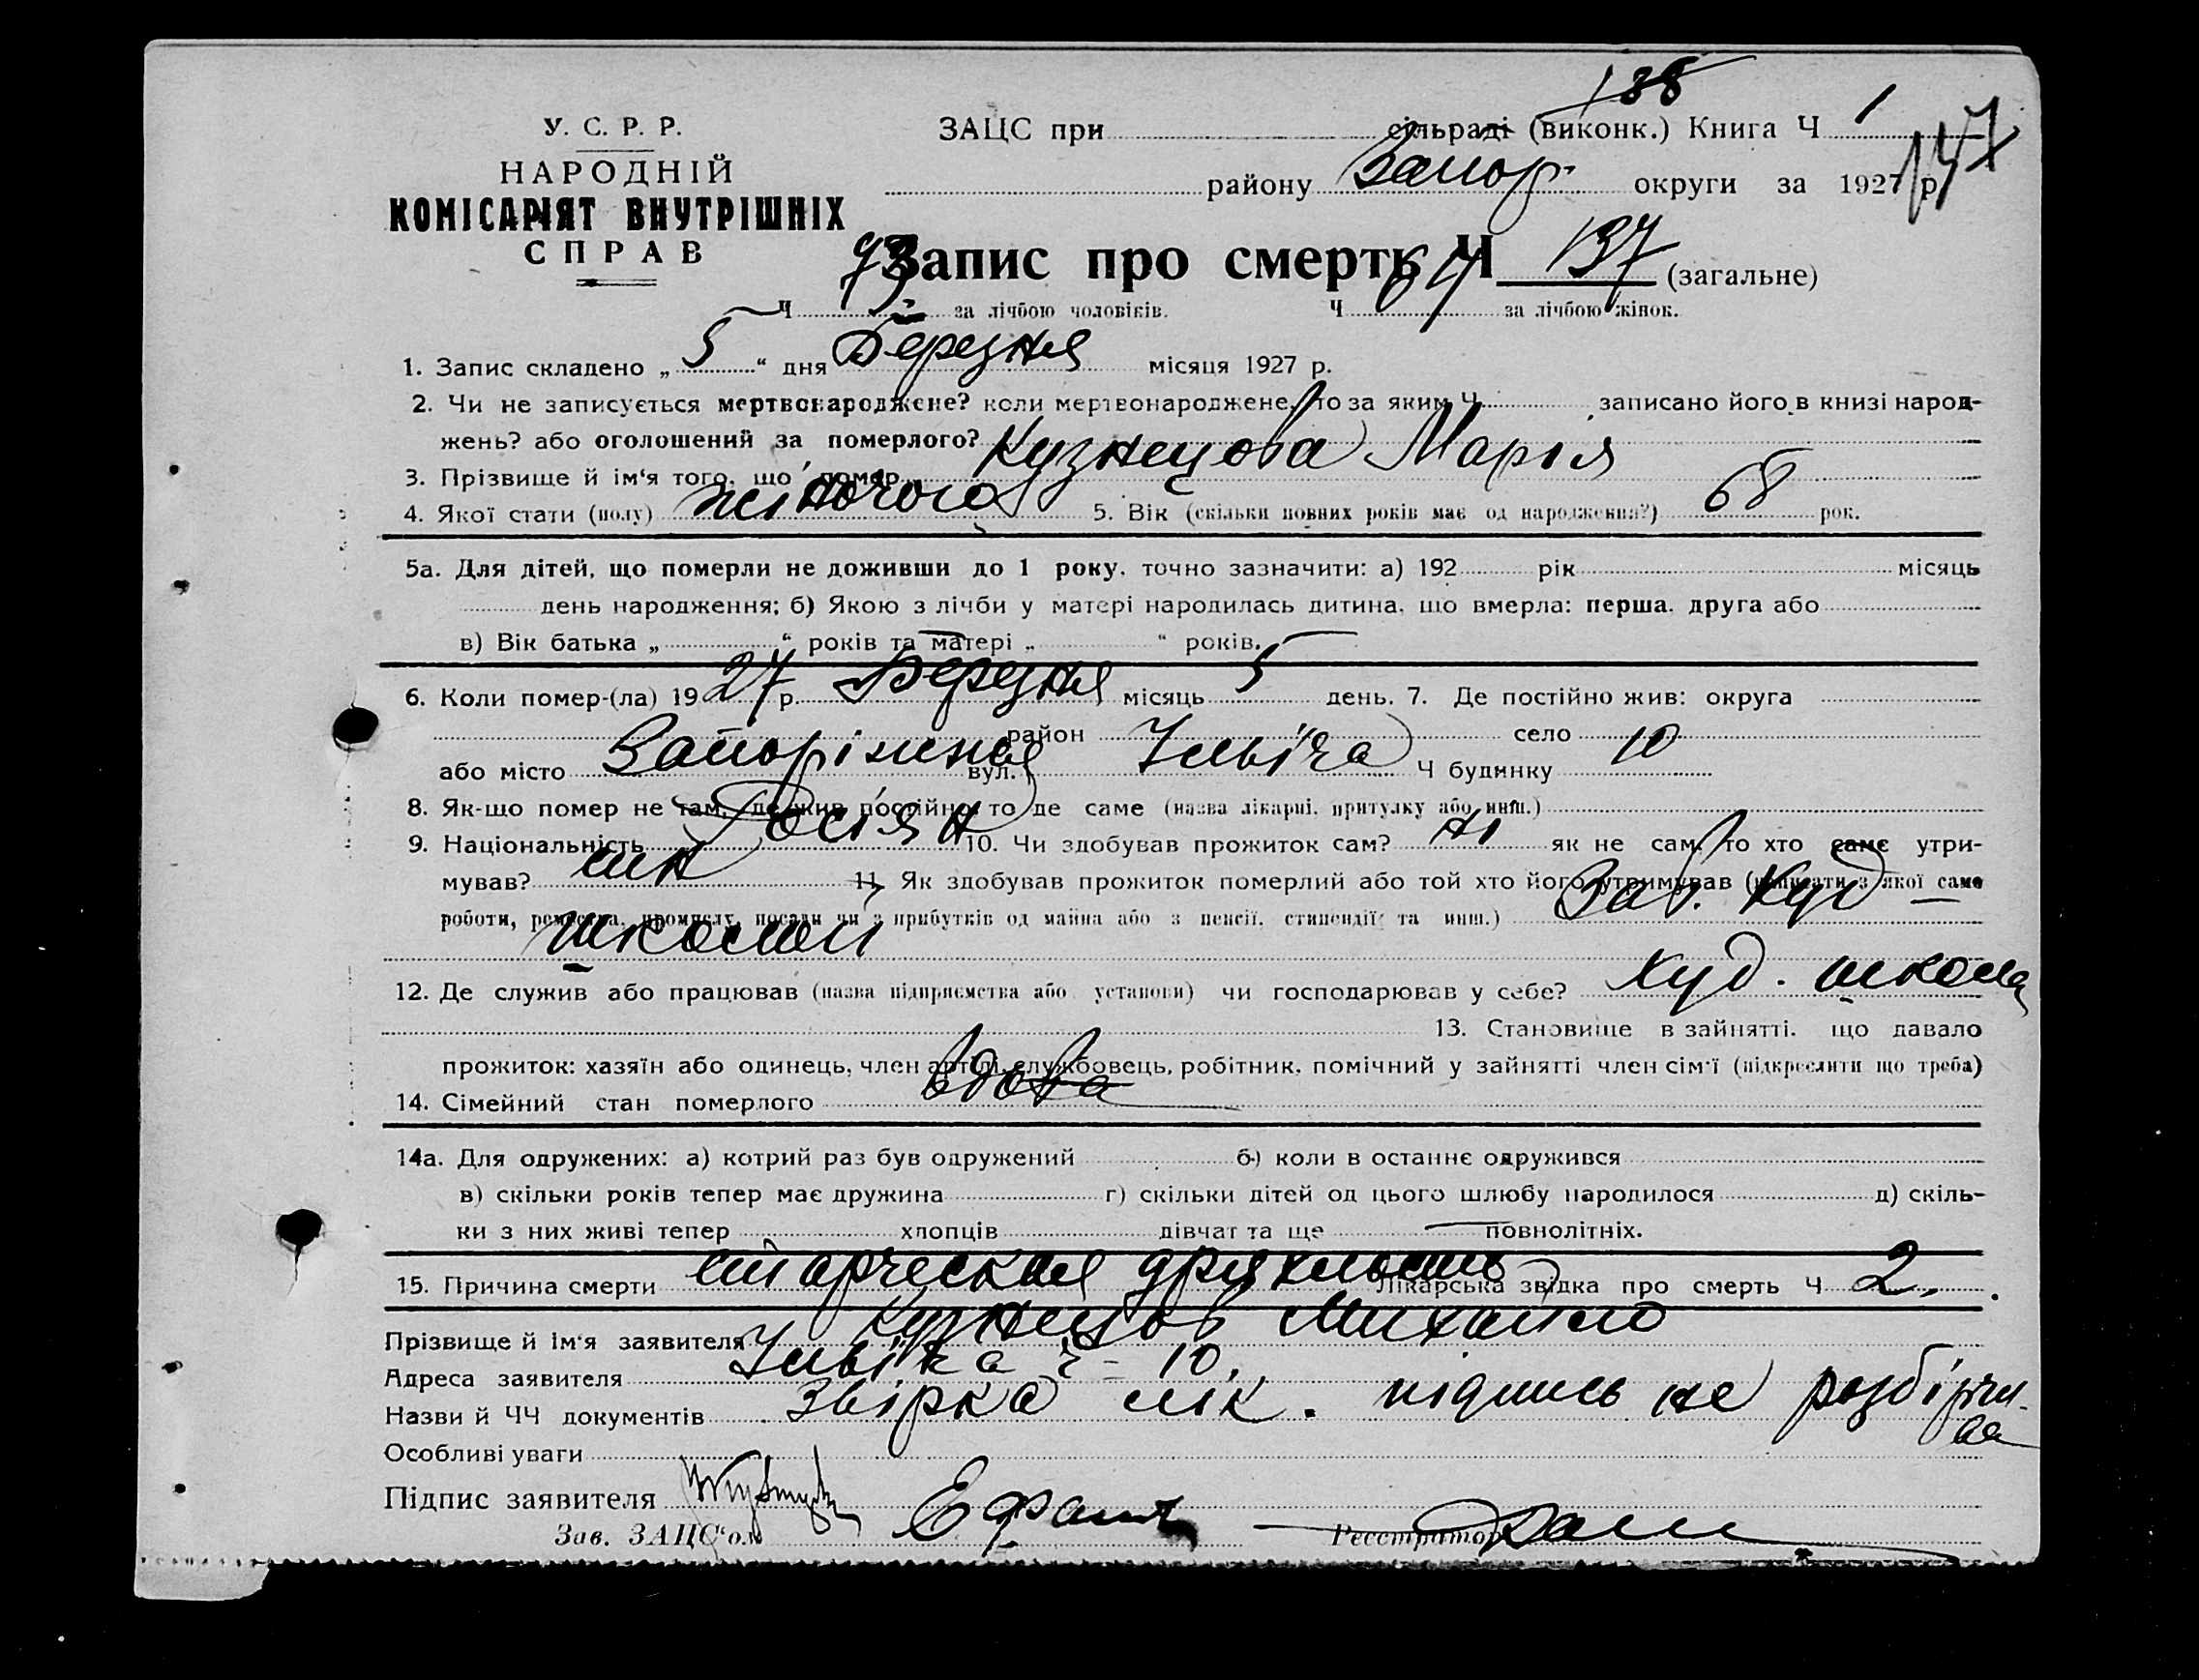 138
У. С. Р. Р.
НАРОДНІЙ
КОМІСАРІЯТ ВНУТРІШНІХ
СПРАВ
ЗАЦС при сільраді (виконк.) Книга Ч 1
147
району Запор. округи за 1927 р.
Запис про смерть Ч 137 (загальне)
Ч 73 за лічбою чоловіків. Ч 64 за лічбою жінок.
1. Запис складено „ 5 “ дня Березня місяця 1927 р.
2. Чи не записується мертвонароджене? коли мертвонароджене, то за яким Ч записано його в книзі народ-
жень? або оголошений за померлого?
3. Прізвище й ім‘я того, що помер Кузнецова Марія
4. Якої стати (полу) жіночого 5. Вік (скільки повних років має од народження?) 68 рок.
5а. Для дітей, що померли не доживши до 1 року, точно зазначити: а) 192 рік місяць
день народження; б) Якою з лічби у матері народилась дитина, що вмерла: перша, друга або
в) Вік батька „ “ років та матері „ “ років.
6. Коли помер-(ла) 1927 р. Березня місяць 5 день. 7. Де постійно жив: округа
район село
або місто Запоріжжя вул. Ілліча Ч будинку 10
8. Як-що помер не там, де жив постійно, то де саме (назва лікарні, притулку або инш.)
9. Національність Росіян 10. Чи здобував прожиток сам? ні як не сам, то хто саме утри-
мував? син 11. Як здобував прожиток померлий або той хто його утримував (написати з якої саме
роботи, ремества, промислу, посади чи з прибутків од майна або з пенсії, стипендії та инш.) Зав. Худ –
школой
12. Де служив або працював (назва підприємства або установи) чи господарював у себе? Худ. школа
13. Становище в зайнятті, що давало
прожиток: хазяїн або одинець, член артілі, службовець, робітник, помічний у зайнятті член сім‘ї (підкреслити що треба)
14. Сімейний стан померлого вдова
14а. Для одружених: а) котрий раз був одружений б) коли в останнє одружився
в) скільки років тепер має дружина г) скільки дітей од цього шлюбу народилося д) скіль-
ки з них живі тепер хлопців дівчат та ще повнолітніх.
15. Причина смерти старческая дряхлость Лікарська звідка про смерть Ч 2.
Прізвище й ім‘я заявителя Кузнецов Михайло
Адреса заявителя Ілліча ч – 10.
Назви й ЧЧ документів звірка лік. підпись не розбірчи-
ва
Особливі уваги
Підпис заявителя
Зав. ЗАЦС‘ом Реєстратор